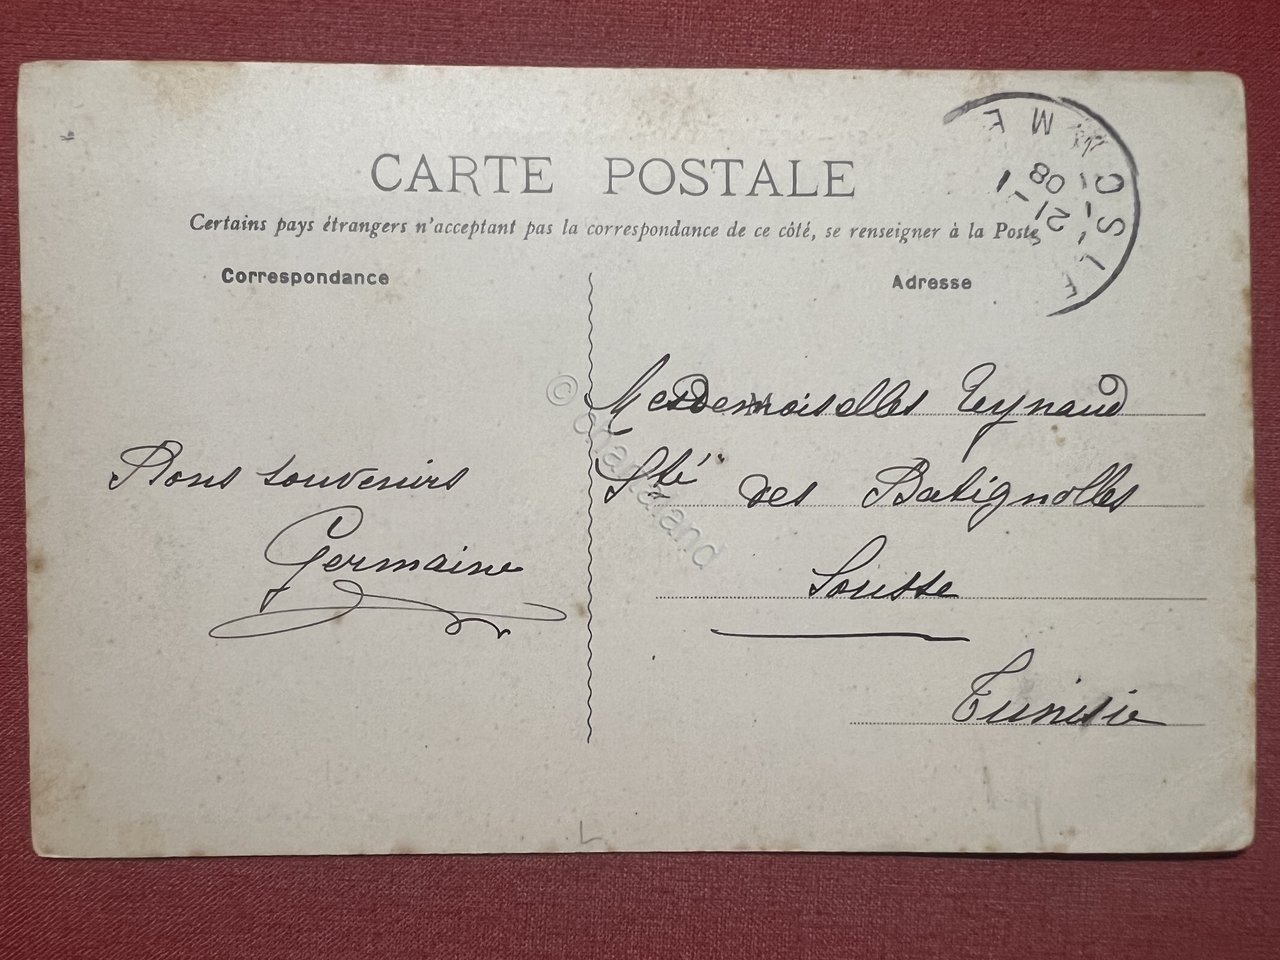 CARTE POSTALE
Certains pays étrangers n'acceptant pas la correspondance de ce côté, se renseigner à la Poste
Correspondance
Adresse
Bons souvenirs
Germaine
Mesdemoiselles Reynaud
Sté des Batignolles
Sousse
Tunisie
21
08